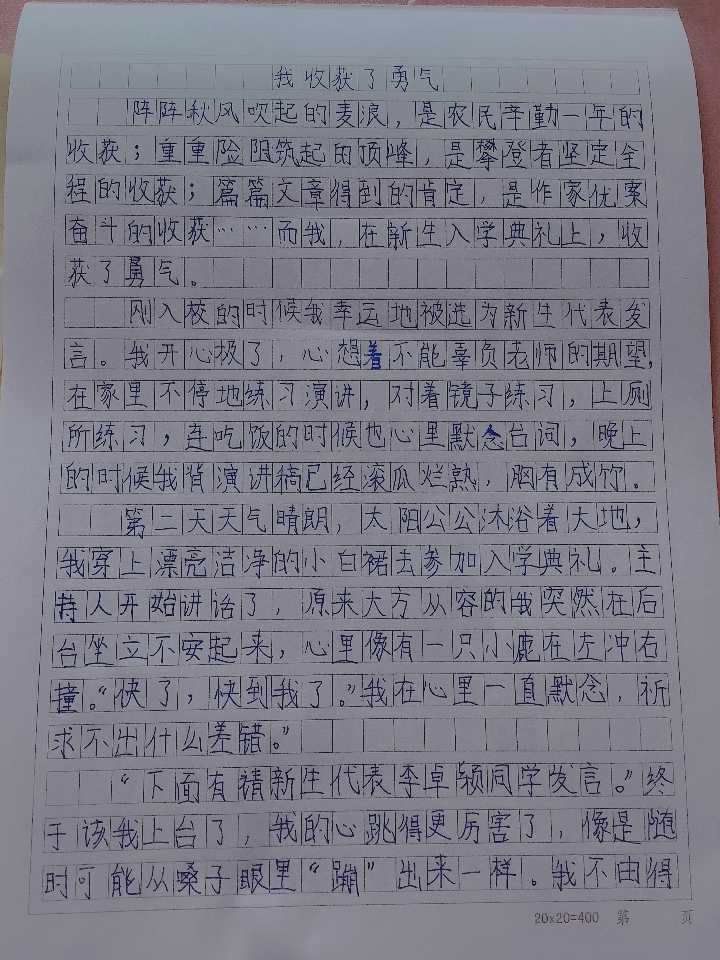 我收获了勇气
阵阵秋风吹起的麦浪，是农民辛勤一年的
收获；重重险阻筑起的顶峰，是攀登者坚定全
程的收获；篇篇文章得到的肯定，是作家伏案
奋斗的收获……而我，在新生入学典礼上，收
获了勇气。
刚入校的时候我幸运地被选为新生代表发
言。我开心极了，心想着不能辜负老师的期望，
在家里不停地练习演讲，对着镜子练习，上厕
所练习，连吃饭的时候也心里默念台词，晚上
的时候我背演讲稿已经滚瓜烂熟，胸有成竹。
第二天天气晴朗，太阳公公沐浴着大地，
我穿上漂亮洁净的小白裙去参加入学典礼。主
持人开始讲话了，原来大方从容的我突然在后
台坐立不安起来，心里像有一只小鹿在左冲右
撞。“快了，快到我了。”我在心里一直默念，祈
求不出什么差错。”
“下面有请新生代表李卓颖同学发言。”终
于该我上台了，我的心跳得更厉害了，像是随
时可能从嗓子眼里“蹦”出来一样。我不由得
20×20=400 第 页